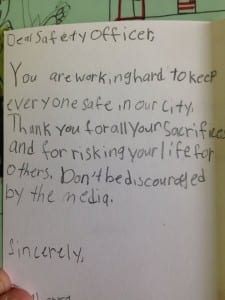 Dear Safety Officer,
You are working hard to keep
everyone safe in our city.
Thank you for all your Sacrifices
and for risking your life for
others. Don't be discouraged
by the media.
Sincerely,